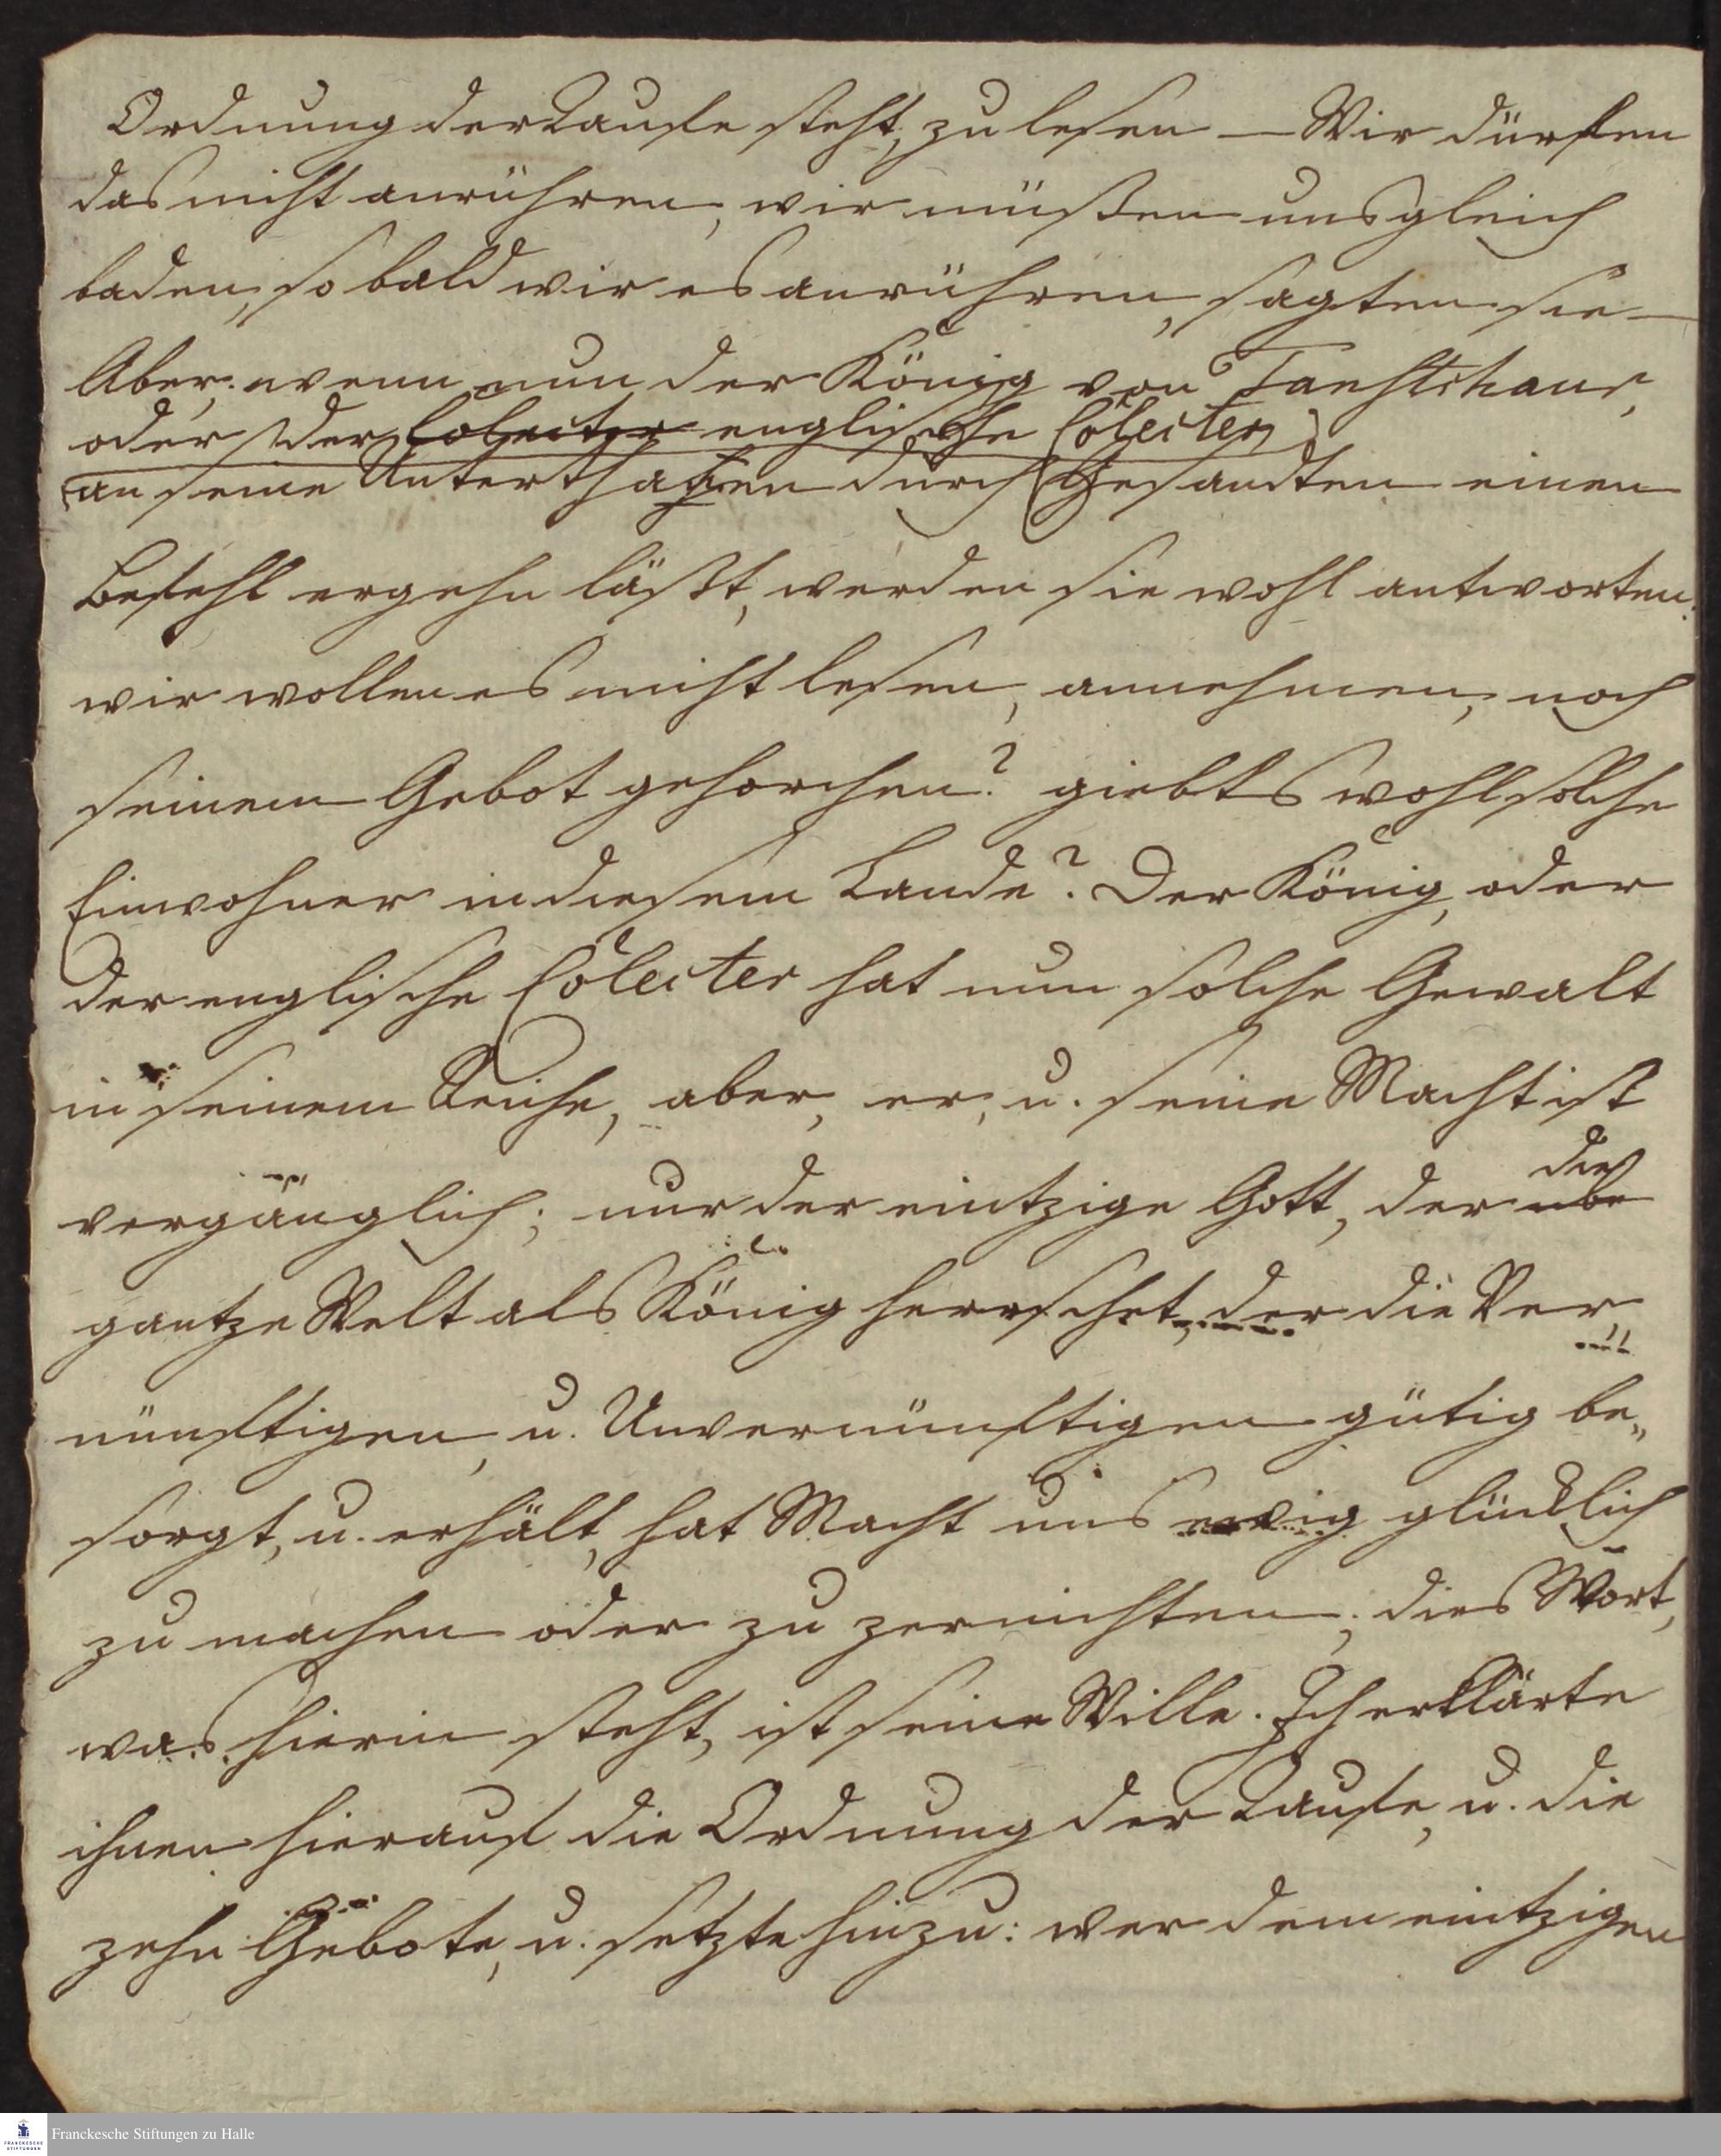 Ordnung der Taufe steht, zu lesen — Wir dürfen
das nicht anrühren, wir müßen uns gleich
baden, so bald wir es anrühren, sagten sie —
Aber, wenn nun der König von Tanschaur,
oder der Colecter englische Colecter
an seine Unterthanen durch Gesandten einen
Befehl ergehn läßt, werden sie wohl antworten:
wir wollen es nicht lesen, annehmen, noch
seinem Gebot gehorchen? giebts wohl solche
Einwohner in diesem Lande? Der König, oder
der englische Colecter hat nun solche Gewalt
in seinem Reiche, aber, er, u. seine Macht ist
vergänglich; nur der eintzige Gott, der die
gantze Welt als König herrschet, der die Ver,,
nünftigen, u. Unvernünftigen gütig be,,
sorgt, u. erhält, hat Macht uns ewig glücklich
zu machen oder zu zernichten, dies Wort,
was hierin steht, ist seine Wille. Ich erklärte
ihnen hierauf die Ordnung der Taufe, u. die
zehn Gebote, u. setzte hinzu: wer dem eintzigen
Franckesche Stiftungen zu Halle